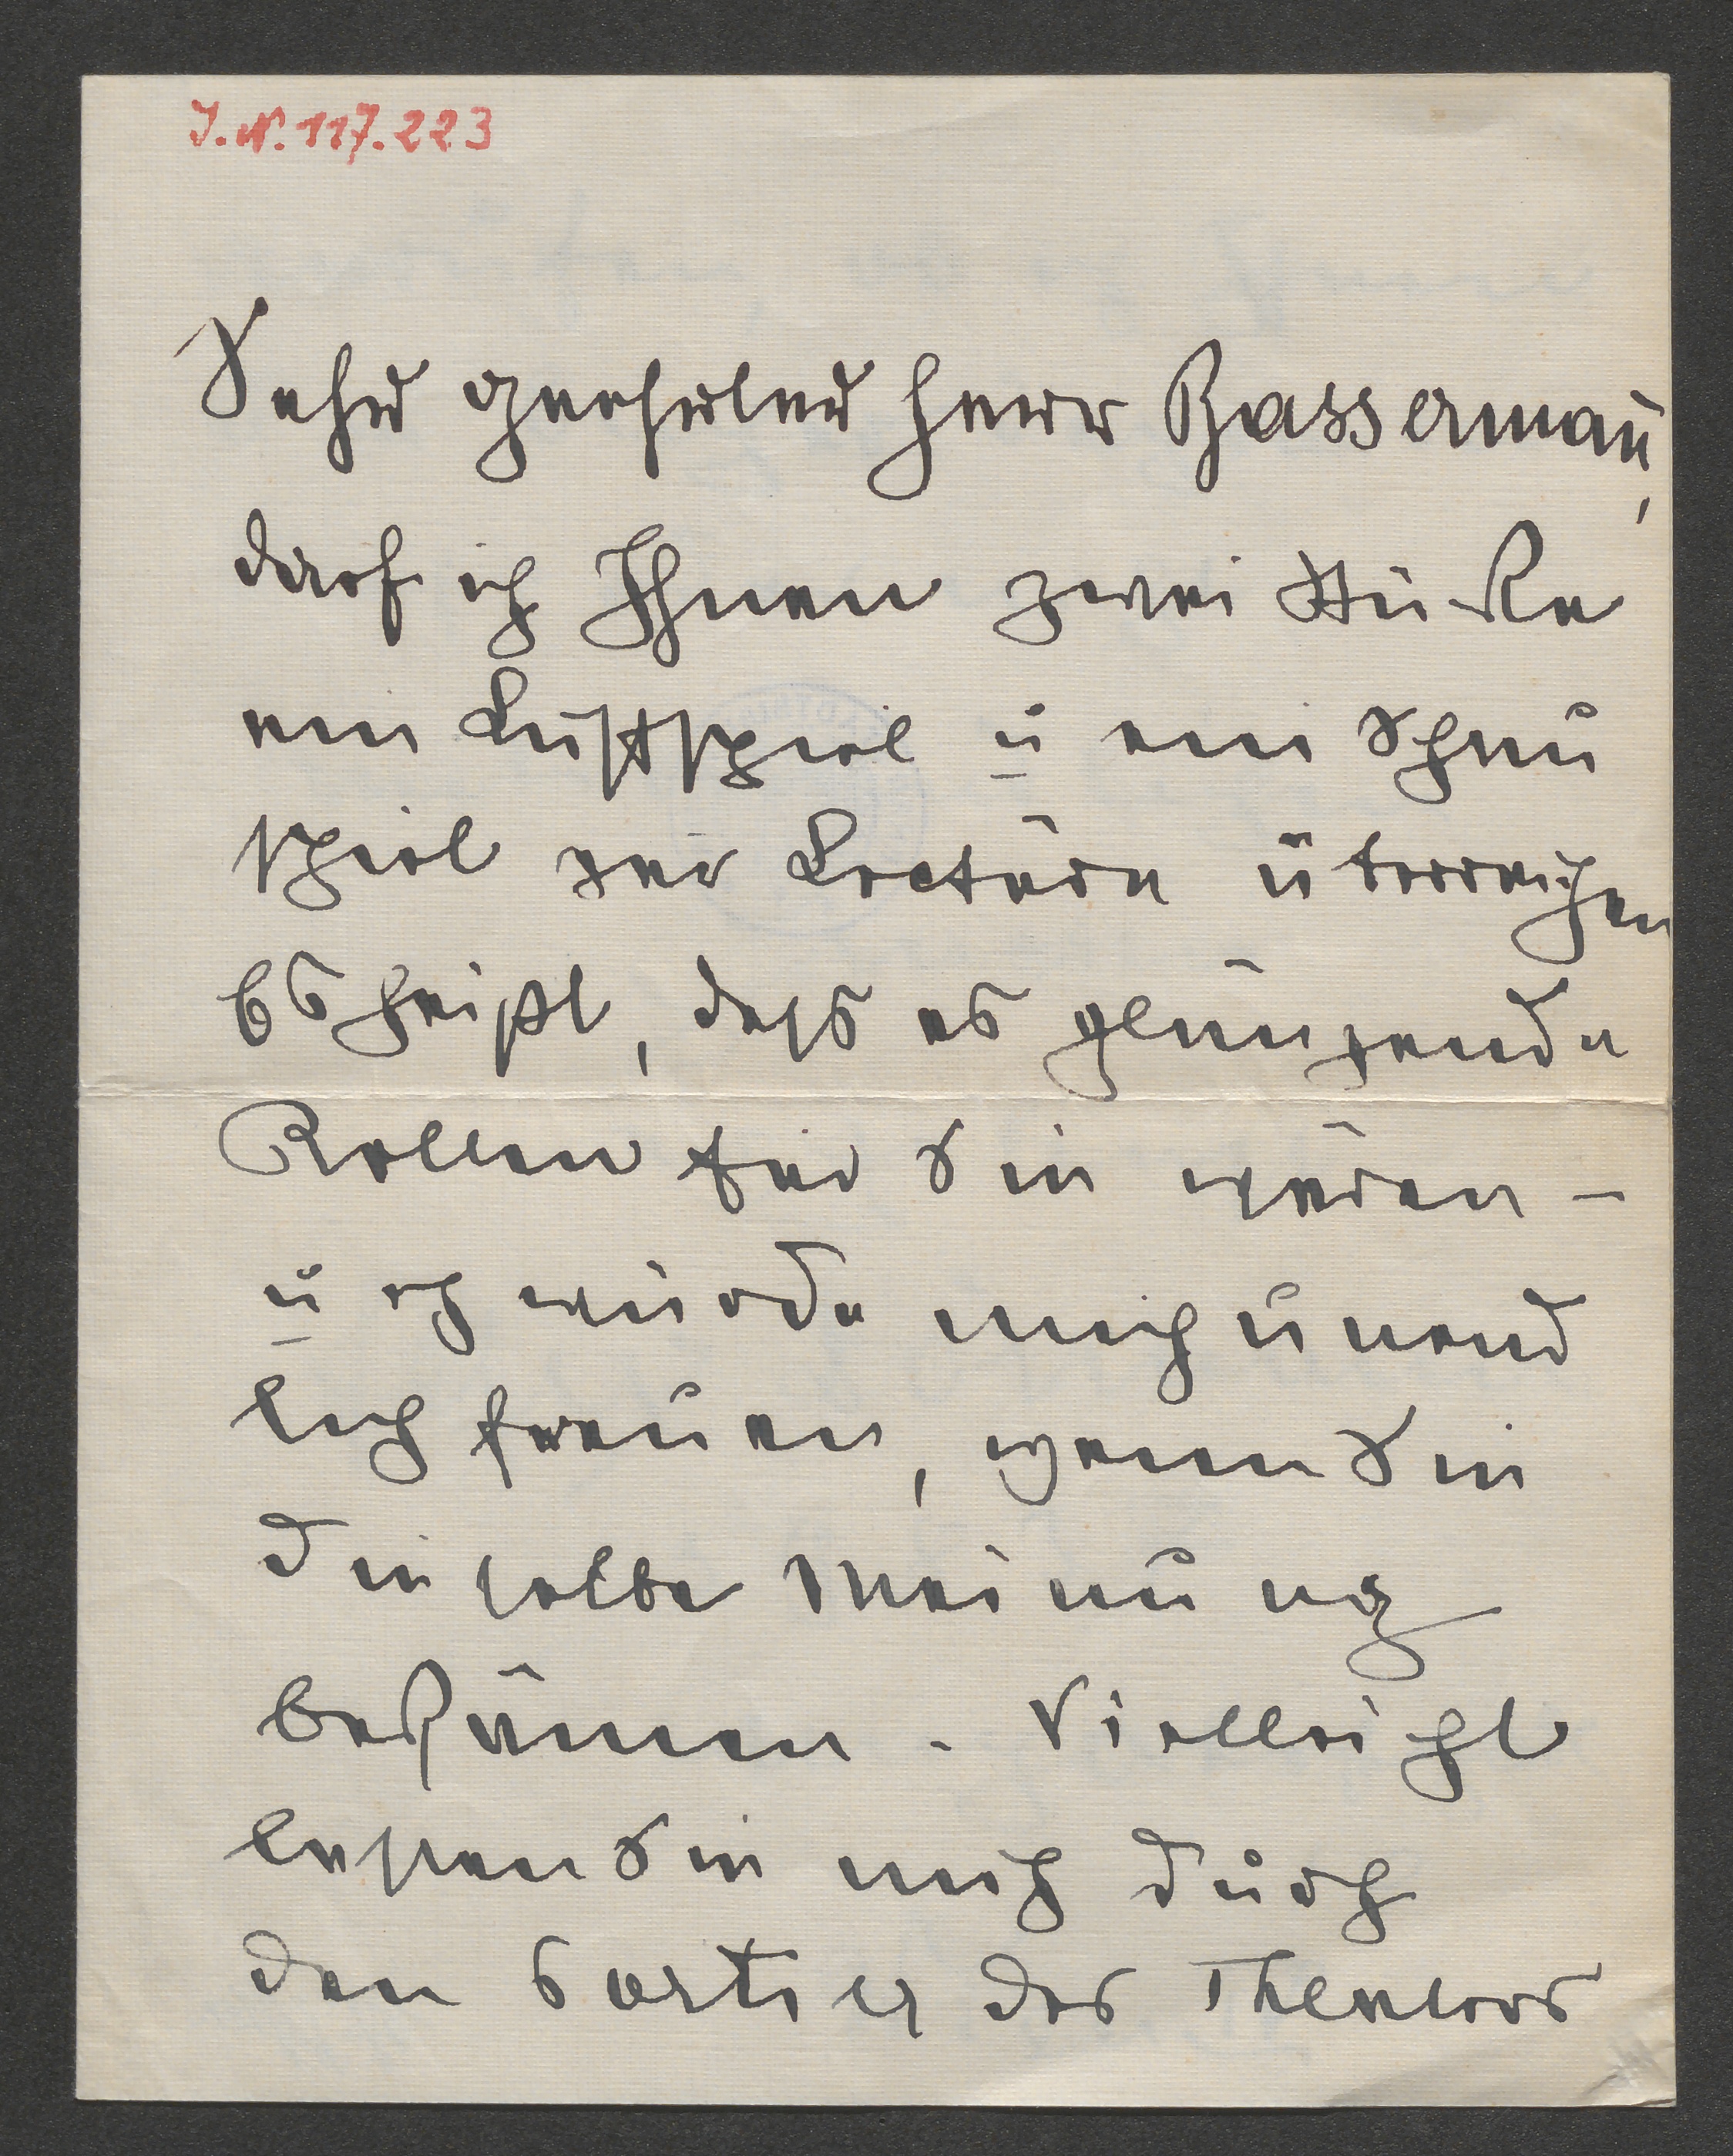 J.N. 117.223
Sehr geehrter Herr Bassermañ,
darf ich Ihnen zwei Stücke
ein Lustspiel u ein Schau
spiel zur Lectüre überreichen
Es heißt, daß es glänzende
Rollen für Sie wären –
u ich würde mich unend
lich freuen, wenn Sie
dieselbe Meinung
bekämen. Vielleicht
lassen Sie mich durch
den Portier des Theaters